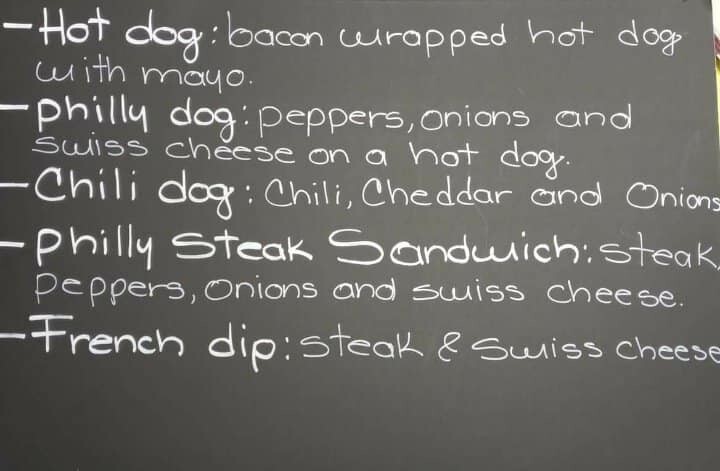 - Hot dog: bacon wrapped hot dog
with mayo.
- Philly dog: peppers, onions and
Swiss cheese on a hot dog.
- Chili dog: Chili, Cheddar and Onions
- Philly Steak Sandwich: steak,
Peppers, Onions and swiss cheese.
- French dip: steak & Swiss cheese